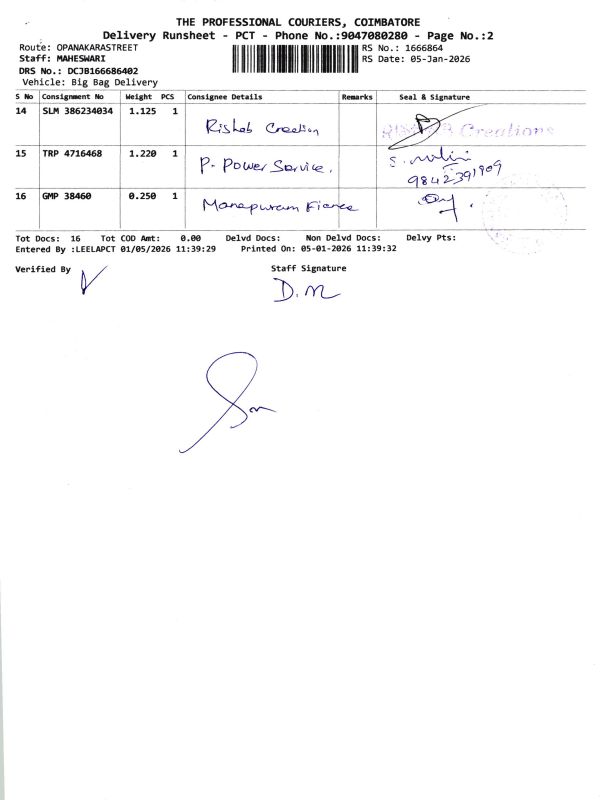 THE PROFESSIONAL COURIERS, COIMBATORE
Delivery Runsheet - PCT - Phone No.:9047080280 - Page No.:2
Route: OPANAKARASTREET RS No.: 1666864
Staff: MAHESWARI RS Date: 05-Jan-2026
DRS No.: DCJB166686402
Vehicle: Big Bag Delivery
S No Consignment No Weight PCS Consignee Details Remarks Seal & Signature
14 SLM 386234034 1.125 1 Rishab Creation Creations
15 TRP 4716468 1.220 1 P- Power Service. S. 
9842391909
16 GMP 38460 0.250 1 Manapuram Fiance
Tot Docs: 16 Tot COD Amt: 0.00 Delvd Docs: Non Delvd Docs: Delvy Pts:
Entered By :LEELAPCT 01/05/2026 11:39:29 Printed On: 05-01-2026 11:39:32
Verified By Staff Signature
D. M